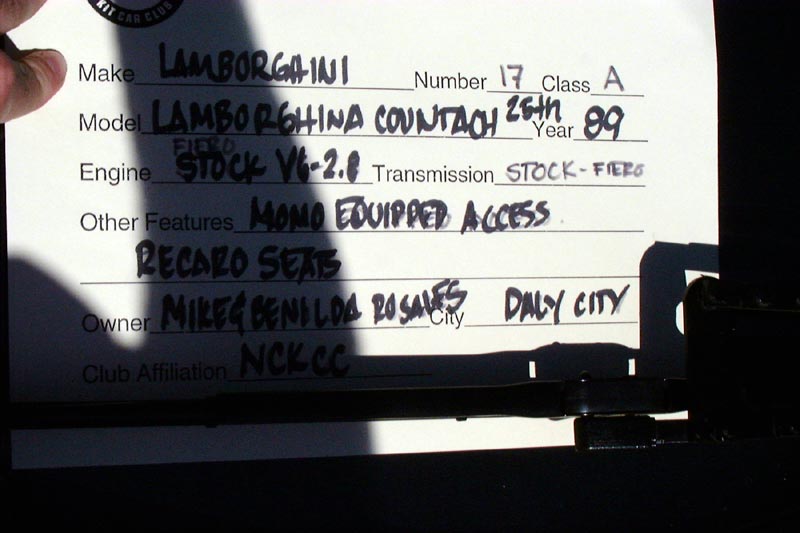 KIT CAR CLUB
Make LAMBORGHINI Number 17 Class A
Model LAMBORGHINA COUNTACH 25th Year 89
FIERO
Engine STOCK V6-2.8 Transmission STOCK-FIERO
Other Features MOMO EQUIPPED ACCESS.
RECARO SEATS
Owner MIKE & BENILDA ROSALES City DALY CITY
Club Affiliation NCKCC